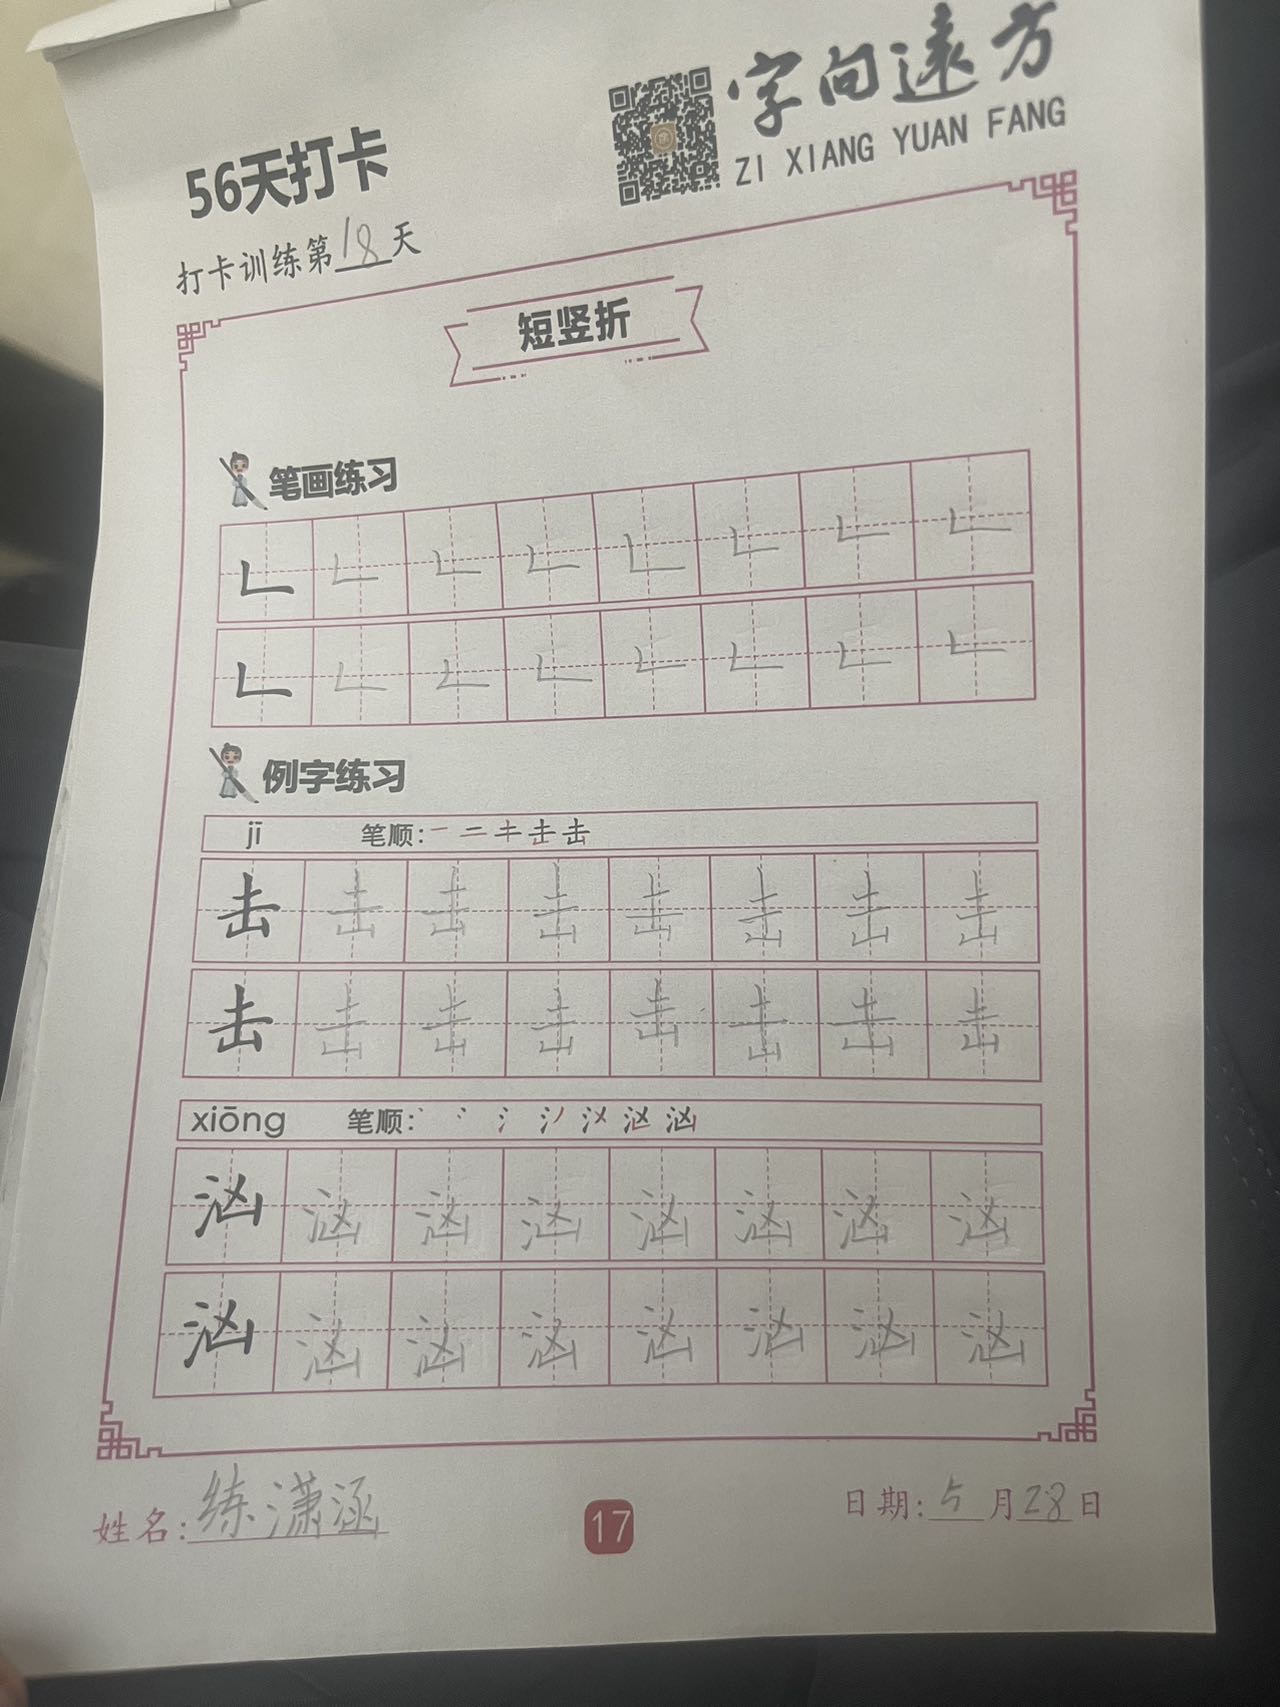 字向远方
ZI XIANG YUAN FANG
56天打卡
打卡训练第18天
短竖折
笔画练习
𠃊 𠃊 𠃊 𠃊 𠃊 𠃊 𠃊 𠃊
𠃊 𠃊 𠃊 𠃊 𠃊 𠃊 𠃊 𠃊
例字练习
jī 笔顺: 一 二 キ 击 击
击 击 击 击 击 击 击 击
击 击 击 击 击 击 击 击
xiōng 笔顺: 丶 冫 氵 汹 汹
汹 汹 汹 汹 汹 汹 汹 汹
汹 汹 汹 汹 汹 汹 汹 汹
姓名:练潇涵
17
日期:5月28日